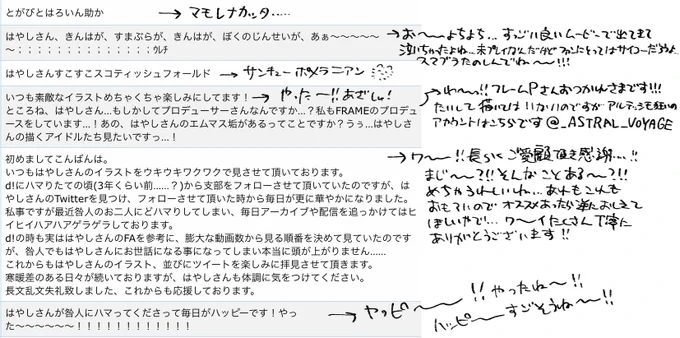 とがびとはろいん助か
→ マモレナカッタ.....
はやしさん、きんはが、すまぶらが、きんはが、ぼくのじんせいが、あぁ〜〜〜〜〜
〜；；；；；；；；；；；；ｳﾚﾁ
→ お〜〜よちよち...すごい良いムービーで出てきて
泣いちゃったよね...未プレイなんだけどファンにとってはサイコーだろうね
スマブラたのしんでね〜!!!
はやしさんすこすこスコティッシュフォールド
→ サンキューポメラニアン
いつも素敵なイラストめちゃくちゃ楽しみにしてます！
→ やった〜!!あざし!
ところね、はやしさん...もしかしてプロデューサーさんなんですか...？私もFRAMEのプロデュ
ースをしています...！あの、はやしさんのエムマス垢があるってことですか？うぅ...はやしさ
んの描くアイドルたち見たいですっ...！
フレームPさんおつかれさまです!!!
たいして描いてはいないのですがアルテッシモ狂いの
アカウントはこちらです @_ASTRAL_VOYAGE
初めましてこんばんは。
いつもはやしさんのイラストをウキウキワクワクで見させて頂いております。
d!にハマりたての頃(3年くらい前......？)から支部をフォローさせて頂いていたのですが、は
やしさんのTwitterを見つけ、フォローさせて頂いた時から毎日が更に華やかになりました。
私事ですが最近咎人のお二人にどハマりしてしまい、毎日アーカイブや配信を追っかけてはヒ
イヒイハアハアゲラゲラしております。
d!の時も実ははやしさんのFAを参考に、膨大な動画数から見る順番を決めて見ていたのです
が、咎人でもはやしさんにお世話になる事になってしまい本当に頭が上がりません......
これからもはやしさんのイラスト、並びにツイートを楽しみに拝見させて頂きます。
寒暖差のある日々が続いておりますが、はやしさんも体調に気をつけてください。
長文乱文失礼致しました、これからも応援しております。
→ ワ〜!!長らくご愛顧頂き感謝...!!
まじ〜?!!そんなことある〜?!!
めちゃうれしいね...あれもこれも
おもてぃのでオススメあったら逆におしえて
ほしいやで...ワ〜イたくさん丁寧に
ありがとうございます!!
はやしさんが咎人にハマってくださって毎日がハッピーです！やっ
た〜〜〜〜〜〜！！！！！！！！！！！！
→ ヤッピ〜〜!!やったね〜!!
ハッピ〜〜すごそうね〜〜!!